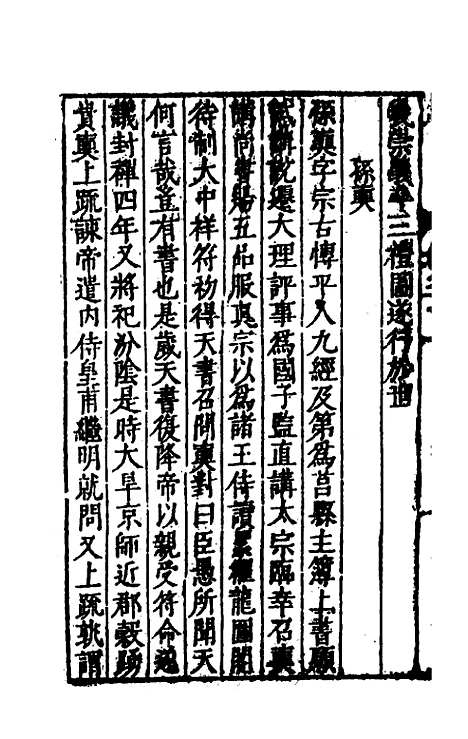 義崇義卒三禮圖遂行於世
孫奭
孫奭字宗古博平人九經及第爲莒縣主簿上書願
試講說遷大理評事爲國子監直講太宗臨幸召奭
講尚書賜五品服真宗以爲諸王侍讀累擢龍圖閣
待制大中祥符初得天書召問奭對曰臣愚所聞天
何言哉豈有書也是歲天書復降帝以親受符命遂
議封禪四年又將祀汾陰是時大旱京師近郡穀踴
貴奭上疏諫帝遣內侍皇甫繼明就問又上疏孰謂